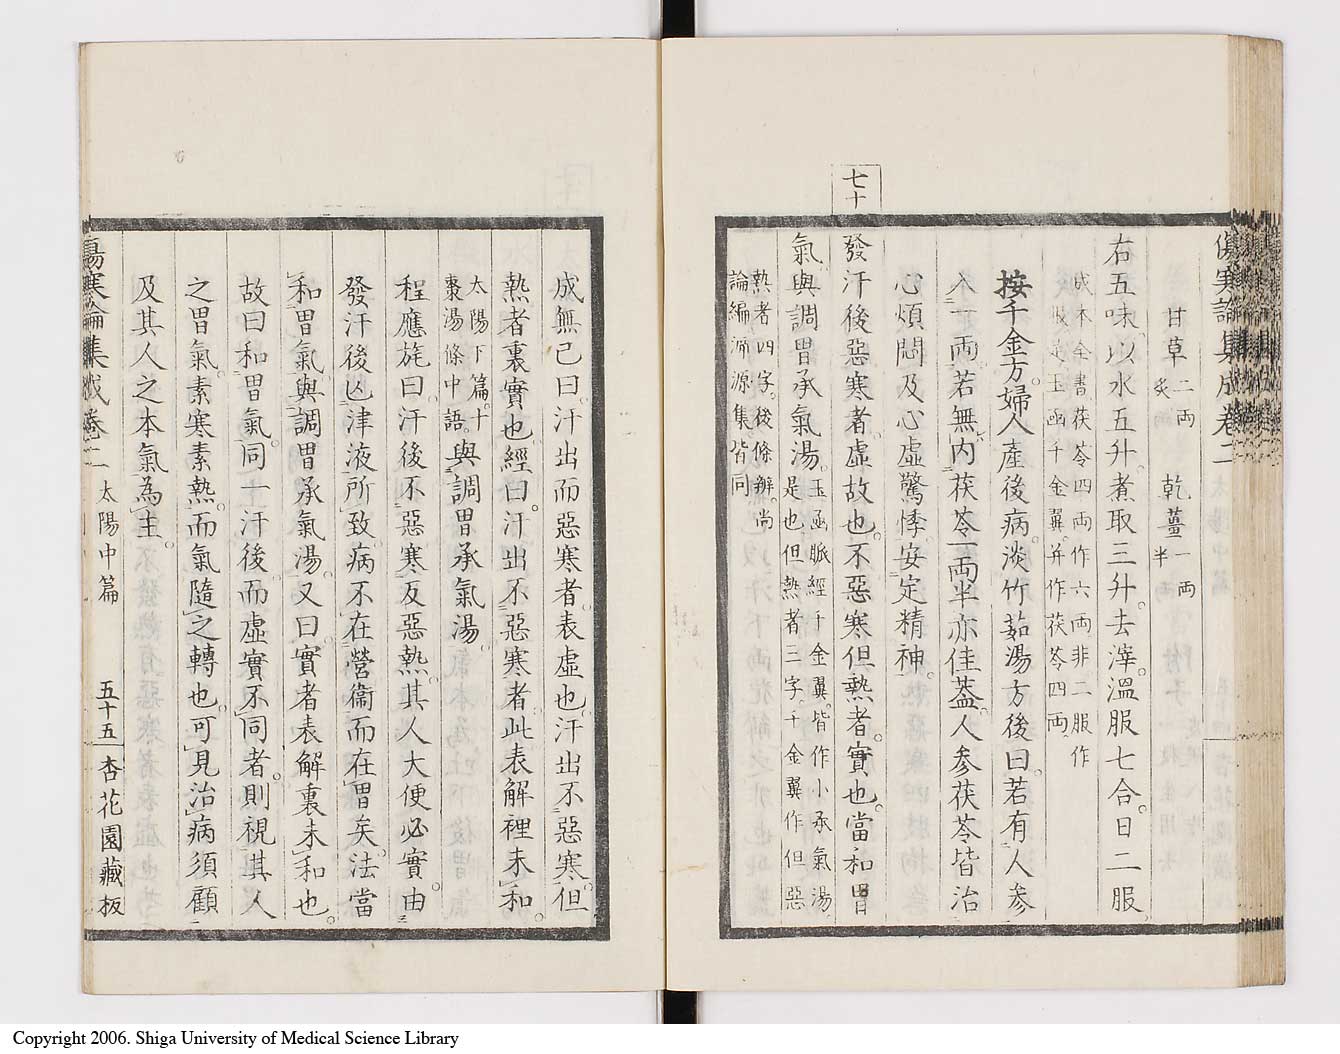 傷寒論集成卷二
甘草二兩炙 乾薑一兩半
右五味以水五升煮取三升去滓溫服七合日二服
成本全書茯苓四兩作六兩非二服作
三服是玉函千金翼并作茯苓四兩
按千金方婦人產後病淡竹茹湯方後曰若有人參
入一兩若無內茯苓一兩半亦佳蓋人參茯苓皆治
心煩悶及心虛驚悸安定精神
七十
發汗後惡寒者虛故也不惡寒但熱者實也當和胃
氣與調胃承氣湯玉函脈經千金翼皆作小承氣湯
是也但熱者三字千金翼作但惡
熱者四字後條辨尚
論編溯源集皆同
成無己曰汗出而惡寒者表虛也汗出不惡寒但
熱者裏實也經曰汗出不惡寒者此表解裡未和
太陽下篇十
棗湯條中語與調胃承氣湯
程應旄曰汗後不惡寒反惡熱其人大便必實由
發汗後亾津液所致病不在營衞而在胃矣法當
和胃氣與調胃承氣湯又曰實者表解裏未和也
故曰和胃氣同一汗後而虛實不同者則視其人
之胃氣素寒素熱而氣隨之轉也可見治病須顧
及其人之本氣為主
傷寒論集成卷二 太陽中篇 五十五 杏花園藏板
Copyright 2006. Shiga University of Medical Science Library